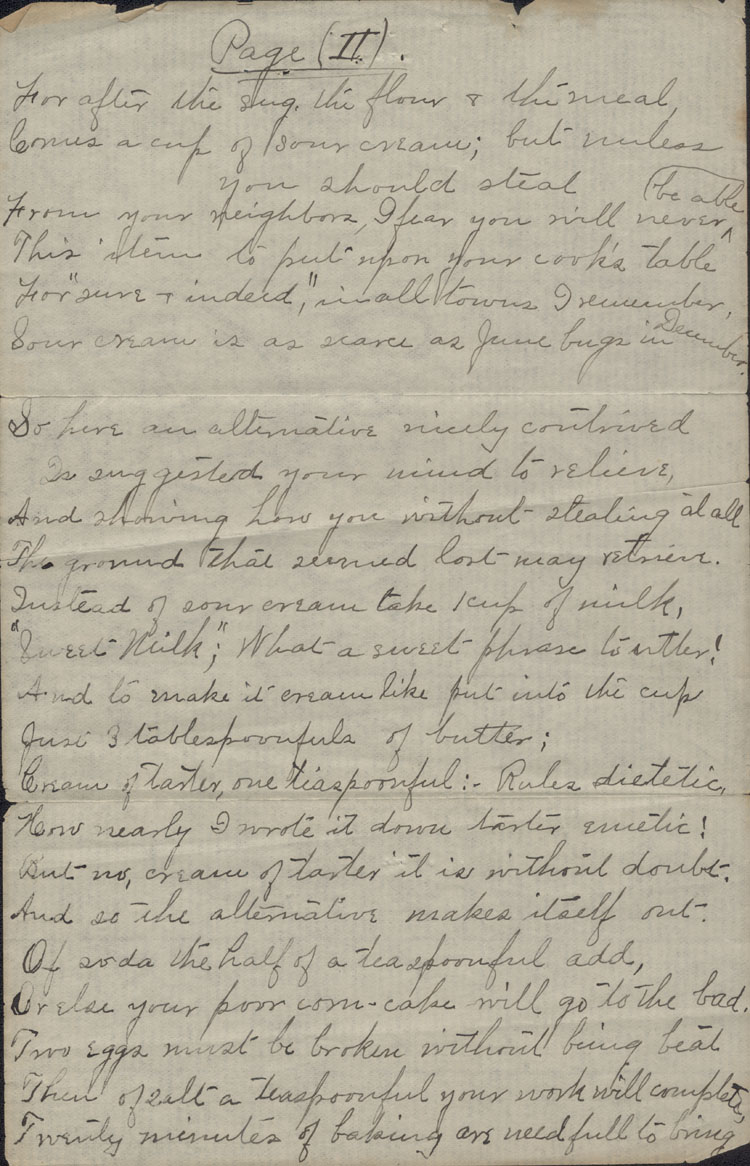 Page (II).
For after the sug. the flour & the meal,
Comes a cup of sour cream; but unless
you should steal
(be able
From your neighbors, I fear you will never ^
This item to put upon your cook's table
For "sure & indeed," in all towns I remember,
Sour cream is as scarce as June bugs in December.
So here an alternative nicely contrived
Is suggested your mind to relieve,
And showing how you without stealing at all
The ground that seemed lost may retrieve.
Instead of sour cream take 1 cup of milk,
"Sweet Milk"; What a sweet phrase to utter!
And to make it cream like put into the cup
Just 3 tablespoonfuls of butter;
Cream of tarter, one teaspoonful:- Rules dietetic,
How nearly I wrote it down tarter emetic!
But no, cream of tarter it is without doubt.
And so the alternative makes itself out.
Of soda the half of a teaspoonful add,
Or else your poor corn-cake will go to the bad.
Two eggs must be broken without being beat
Then of salt a teaspoonful your work will complete,
Twenty minutes of baking are needfull to bring